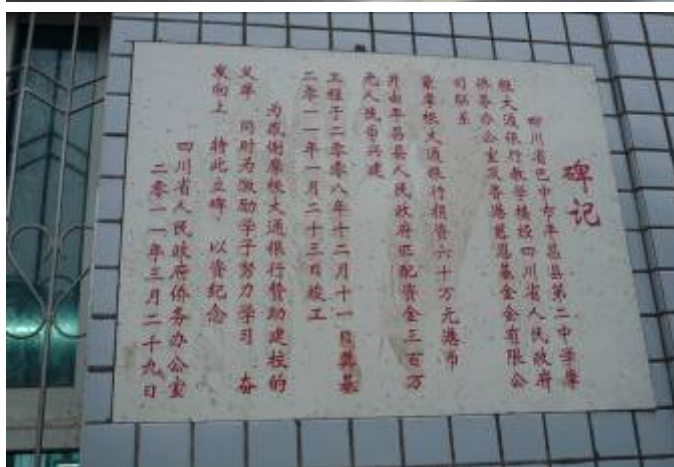 碑记
四川省巴中市平昌县第二中学摩
根大通银行教学楼经四川省人民政府
侨务办公室及香港慈恩基金会有限公
司联系
蒙摩根大通银行捐资六十万元港币
并由平昌县人民政府匹配资金三百万
元人民币兴建
工程于二零零八年十二月十一日奠基
二零一一年一月二十三日竣工
为感谢摩根大通银行赞助建校的
义举 同时为激励学子努力学习 奋
发向上 特此立碑 以资纪念
四川省人民政府侨务办公室
二零一一年三月二十九日